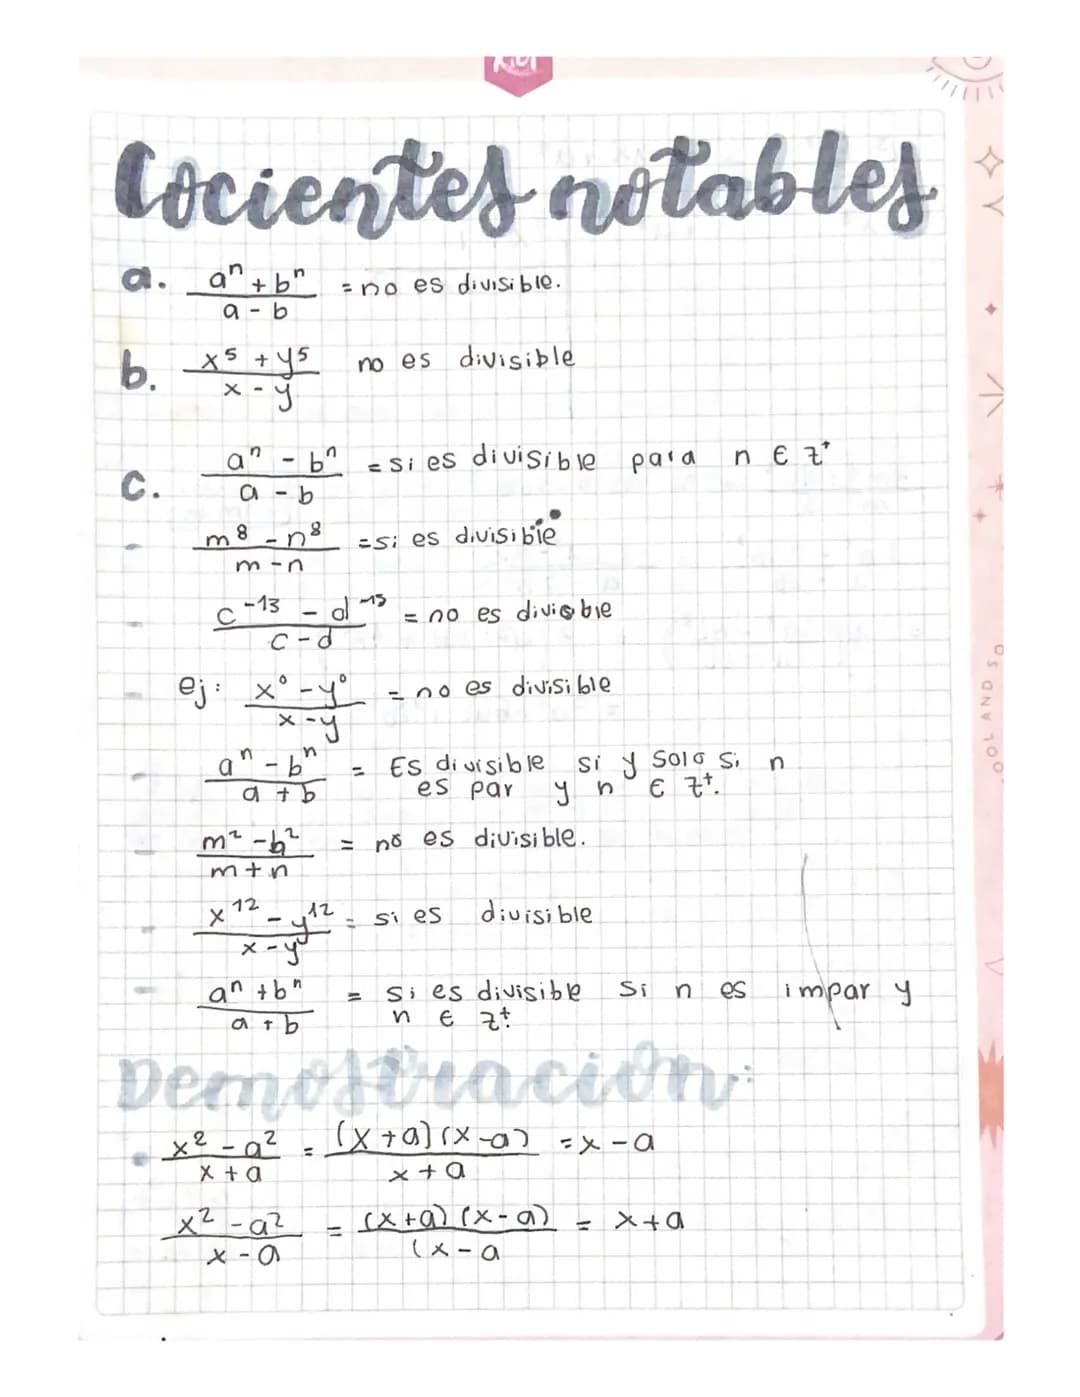 Cocientes notables
a. aⁿ + bⁿ / a - b = no es divisible.
b. x⁵ + y⁵ / x - y no es divisible
c. aⁿ - bⁿ / a - b = si es divisible para n ∈ Z⁺
m⁸ - n⁸ / m - n = si es divisible
c⁻¹³ - d⁻¹³ / c - d = no es divisble
ej: x⁰ - y⁰ / x - y = no es divisible
aⁿ - bⁿ / a + b = Es divisible si y solo si n
es par y n ∈ Z⁺.
m² - b² / m + n = no es divisible.
x¹² - y¹² / x - y = si es divisible
aⁿ + bⁿ / a + b = si es divisible si n es impar y
n ∈ Z⁺
Demostración:
x² - a² / x + a = (x + a) (x - a) / x + a = x - a
x² - a² / x - a = (x + a) (x - a) / (x - a = x + a
OOL AND SO